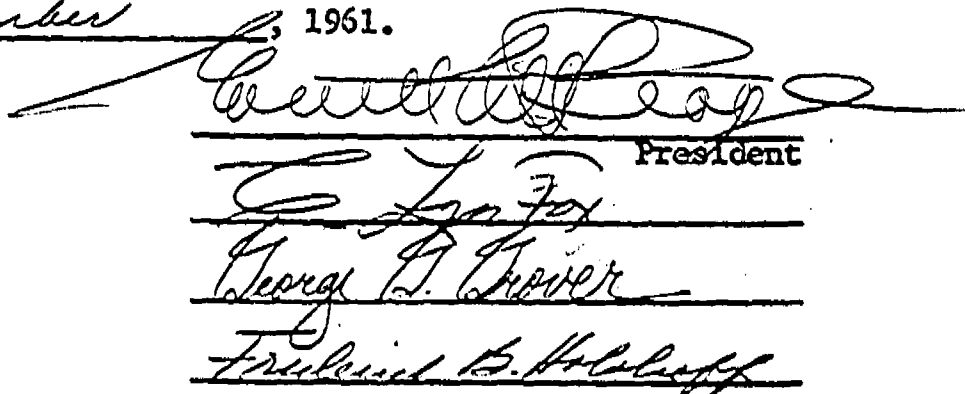 mber, 1961.
President
C. Lyn Fox
George G. Grover
Frederick B. Holoboff